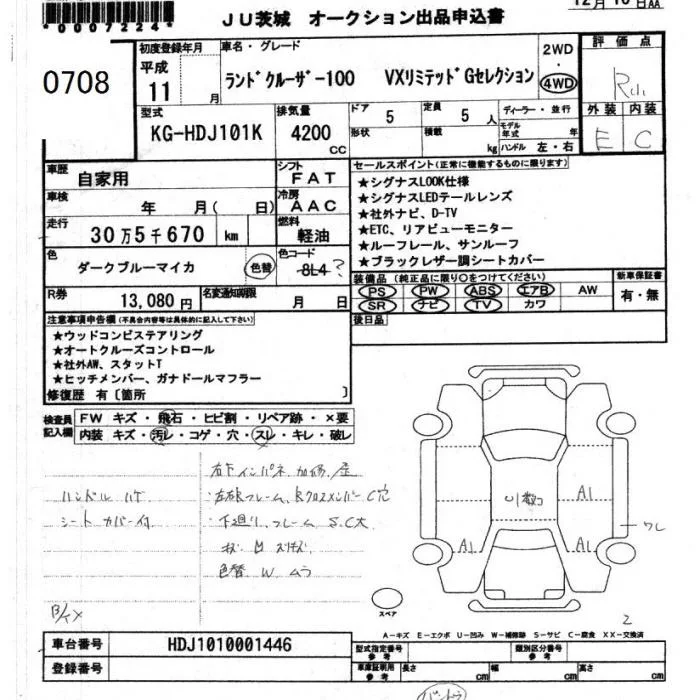 *0007224*
JU茨城 オークション出品申込書
12月 16日AA
0708
初度登録年月
平成
11 月
車名・グレード
ランドクルーザー100 VXリミテッドGセレクション
2WD
・
4WD
評価点
型式
KG-HDJ101K
排気量
4200
CC
ドア
5
定員
5 人
形状
積載
kg
ディーラー・並行
モデル年式 年
ハンドル 左・右
外装 内装
E C
車歴
自家用
シフト
FAT
車検
年 月( 日)
冷房
AAC
走行
30万5千670 km
燃料
軽油
色
ダークブルーマイカ
色替
色コード
8L4 ?
R券
13,080 円
名変通知期限
月 日
セールスポイント(正常に機能するものに限ります)
★シグナスLOOK仕様
★シグナスLEDテールレンズ
★社外ナビ、D-TV
★ETC、リアビューモニター
★ルーフレール、サンルーフ
★ブラックレザー調シートカバー
装備品 (純正品に限り○をつけてください)
PS PW ABS エアB AW
SR ナビ TV カワ
新車保証書
有・無
後日品
注意事項申告欄(不具合内容等は具体的に記入して下さい)
★ウッドコンビステアリング
★オートクルーズコントロール
★社外AW、スタットT
★ヒッチメンバー、ガナドールマフラー
修復歴 有〔箇所 〕
検査員
記入欄
FW キズ・飛石・ヒビ割・リペア跡・×要
内装 キズ・汚レ・コゲ・穴・スレ・キレ・破レ
ハンドル ハゲ
シート カバー付
色替 W ムラ
A1
A1
A1
ワレ
スペア
2
A-キズ E-エクボ U-凹み W-補修跡 S-サビ C-腐食 XX-交換済
車台番号
HDJ1010001446
登録番号
型式指定番号
参考
類別区分番号
参考
車庫証明用
参考
長さ cm
幅 cm
高さ cm